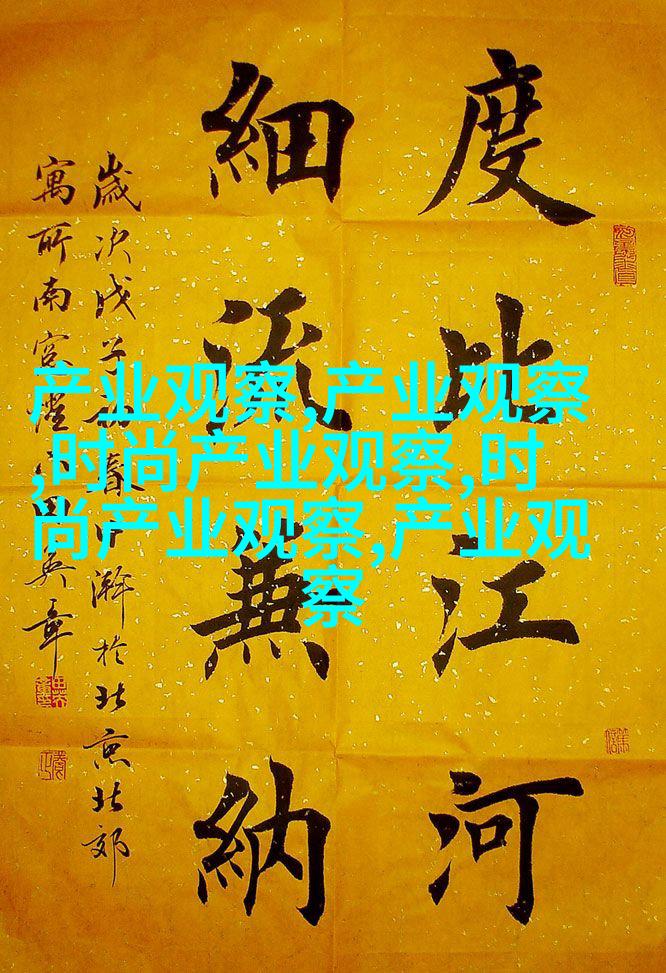 度比江河
細流兼納
歲次戊子春中澣於北京北郊
寓所南窗燈田英章
产业观察,产业观察
,时尚产业观察,时
尚产业观察,产业观
察